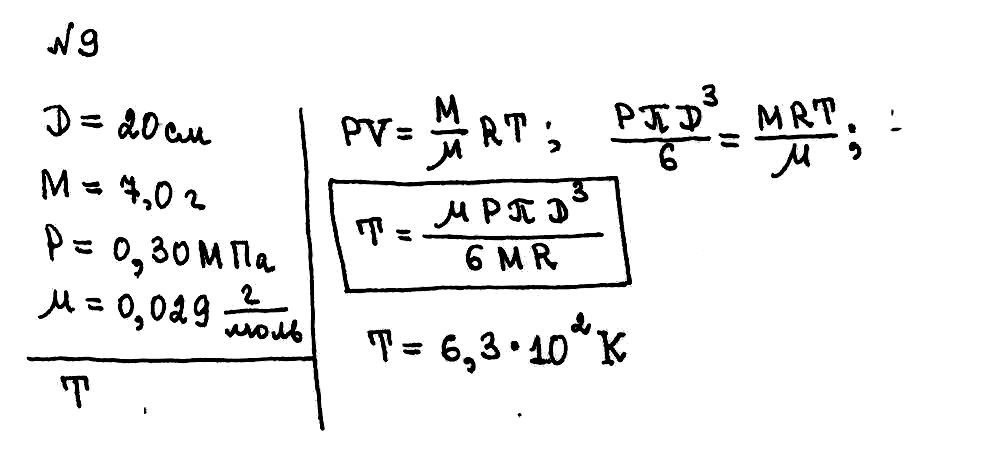 №9
D = 20 см
M = 7,0 г
P = 0,30 МПа
μ = 0,029 г/моль
T
PV = M/μ RT ; PπD³/6 = MRT/μ ;
T = μPπD³/6MR
T = 6,3 · 10² К